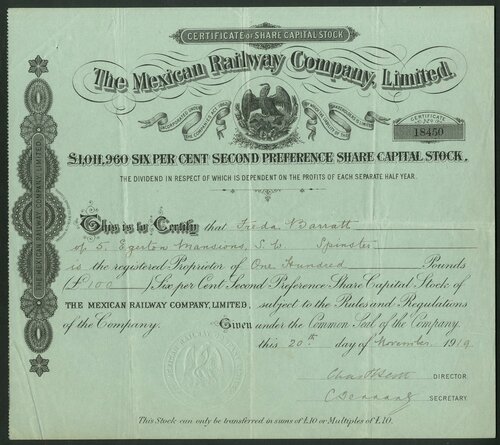 CERTIFICATE OF SHARE CAPITAL STOCK.
The Mexican Railway Company, Limited.
INCORPORATED UNDER THE COMPANIES ACT, 1862
CERTIFICATE
No
18450
£1,011,960 SIX PER CENT SECOND PREFERENCE SHARE CAPITAL STOCK.
THE DIVIDEND IN RESPECT OF WHICH IS DEPENDENT ON THE PROFITS OF EACH SEPARATE HALF YEAR.
This is to Certify that Freda Barratt
of 5, Egerton Mansions, S.W. Spinster
is the registered Proprietor of One Hundred Pounds
(£100) Six per Cent Second Preference Share Capital Stock of
THE MEXICAN RAILWAY COMPANY, LIMITED, subject to the Rules and Regulations
of the Company. Given under the Common Seal of the Company.
this 20th day of November 1919
DIRECTOR.
SECRETARY.
This Stock can only be transferred in sums of £10 or Multiples of £10.
THE MEXICAN RAILWAY COMPANY, LIMITED.